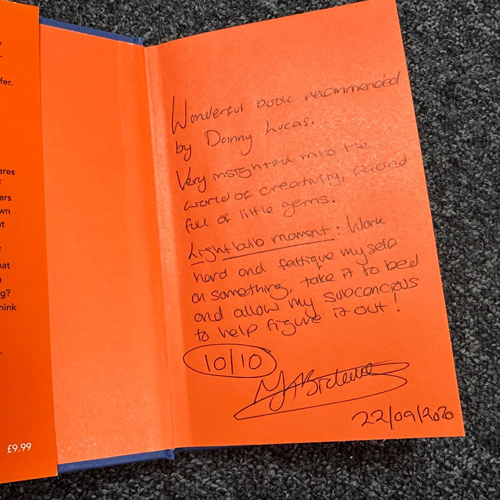 fer.
ares
ers
wn
at
ng?
hink
£9.99
Wonderful book recommended
by Danny Lucas.
Very insightful into the
world of creativity, packed
full of little gems.
Lightbulb moment: Work
hard and fattique myself
on something, take it to bed
and allow my subconcious
to help figure it out!
10/10
22/09/2020